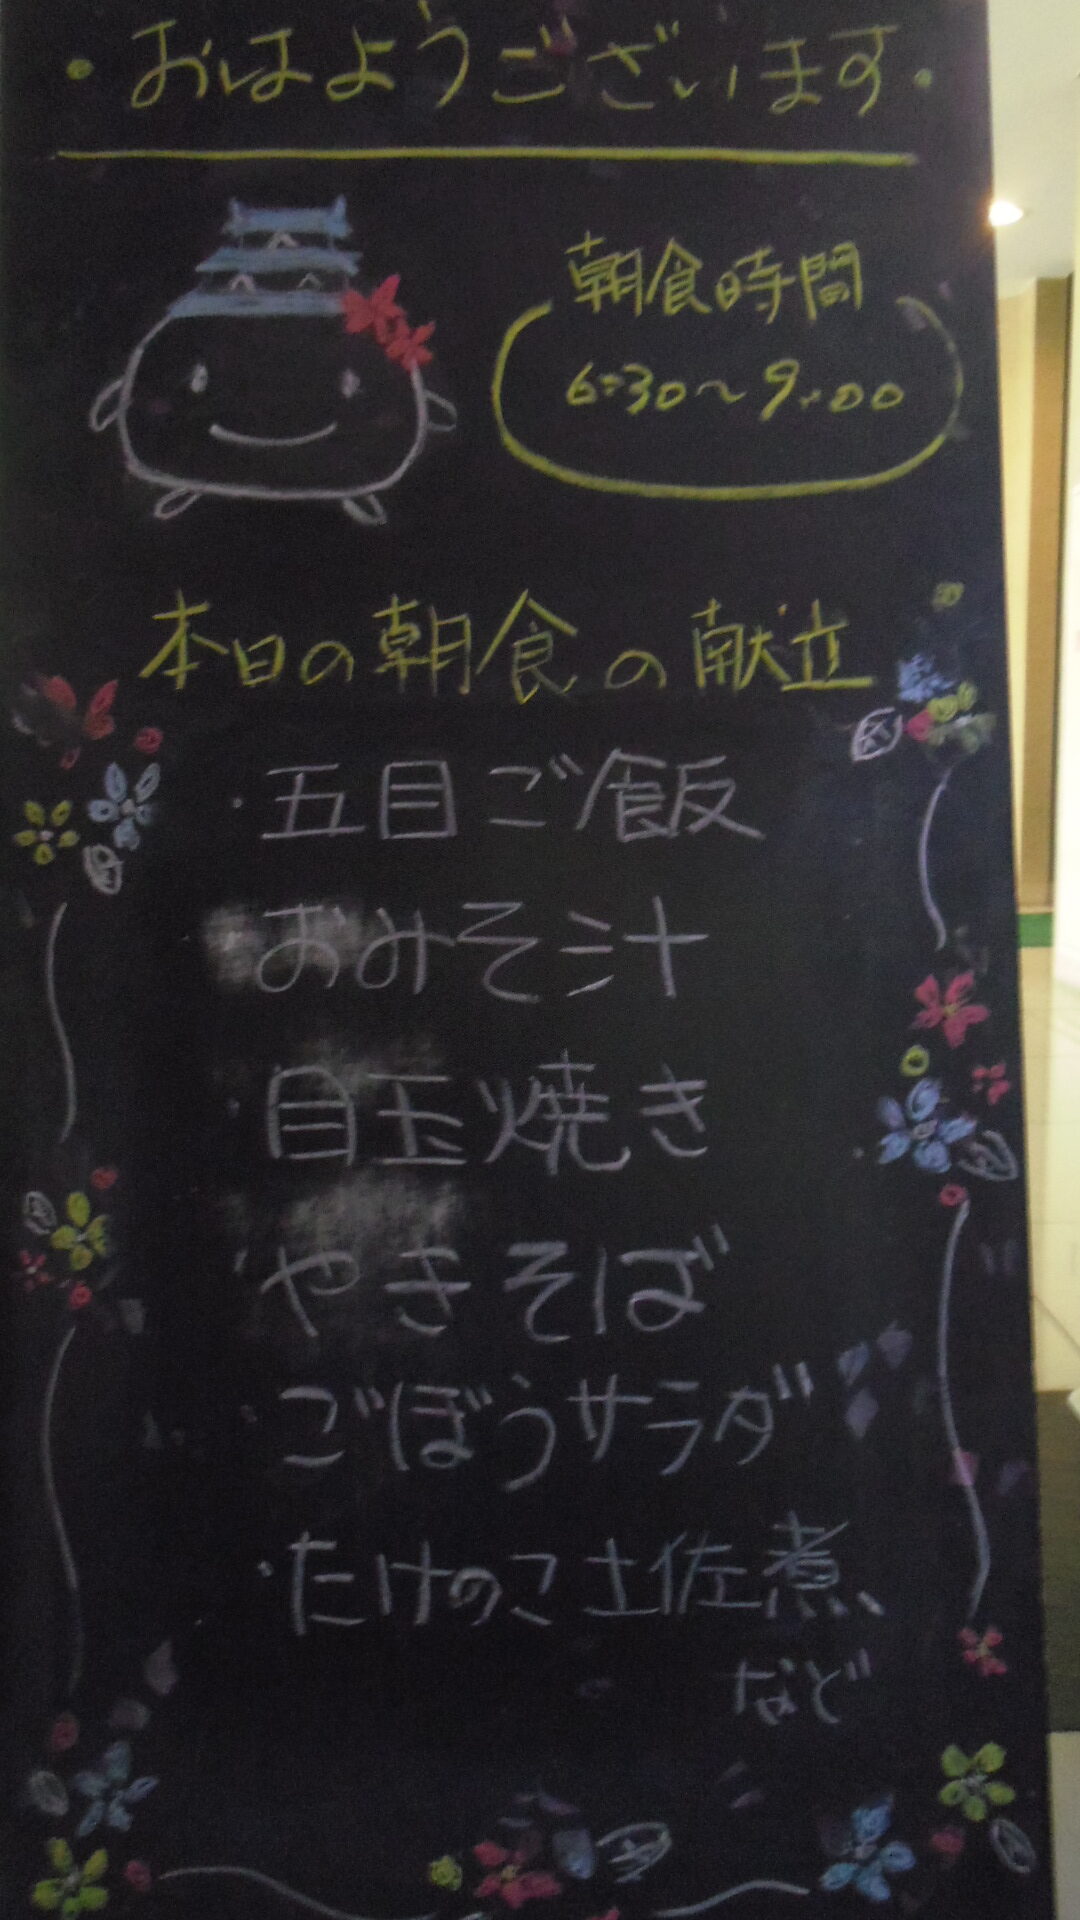 ・おはようございます・
朝食時間
6:30〜9:00
本日の朝食の献立
・五目ご飯
・おみそ汁
・目玉焼き
・やきそば
・ごぼうサラダ
・たけのこ土佐煮、
など